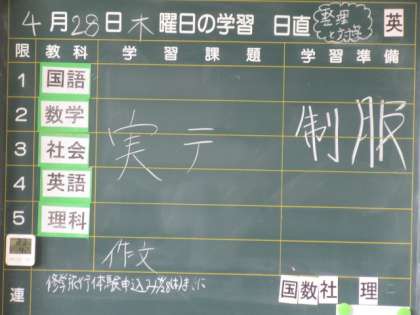 4月28日木曜日の学習 日直 整理と対策 英
限 教科 学習課題 学習準備
1 国語
2 数学
3 社会
4 英語
5 理科
実テ
制服
作文
連 修学旅行体験申込み
国 数 社 理